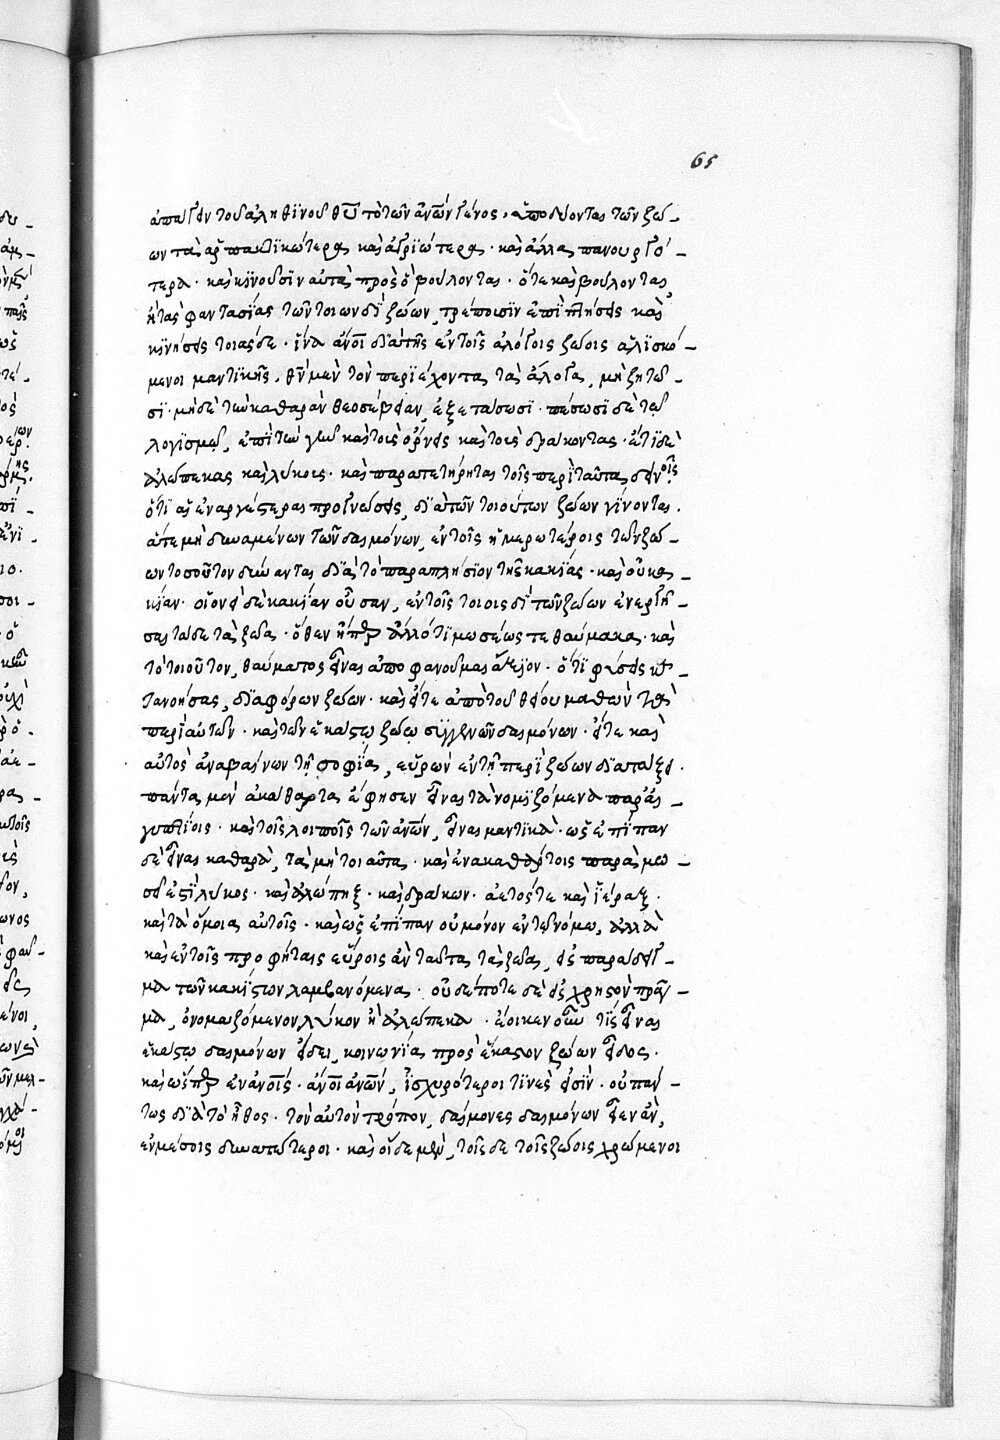 65
ἀπάγειν τοῦ ἀληθϊνοῦ θῡ τὸ τῶν ἀνῶν γένος, ὑποδύονται τῶν ζώ-
ων τὰ ἁρπακτικώτερα καὶ ἀγρϊώτερα· καὶ ἄλλα πανουργό-
τερα· καὶ κϊνοῦσϊν αὐτὰ πρὸς ὃ βούλονται· ὅτε καὶ βούλονται,
ἢ τὰς φαντασίας τῶν τοιωνδϊ ζώων, τρέπουσϊν ἐπὶ πτήσεις καὶ
κϊνήσεις τοιάσδε· ἵνα ἄνοι διὰ τῆς ἐν τοῖς ἀλόγοις ζώοις ἁλϊσκό-
μενοι μαντϊκῆς, θν̄ μὲν τὸν περϊέχοντα τὰ ἄλογα, μὴ ζητῶ-
σϊ· μὴ δὲ τὴν καθαρὰν θεοσέβειαν, ἐξετάσωσϊ· πέσωσϊ δὲ τῷ
λογϊσμῷ, ἐπὶ τὴν γῆν καὶ τοὺς ὄρνεις καὶ τοὺς δράκοντας· ἔτϊ δὲ
ἀλώπεκας καὶ λύκους· καὶ παρατετήρηται τοῖς περὶ ταῦτα δεινοῖς·
ὅτϊ αἱ ἐναργέστεραι προγνώσεις, διὰ τῶν τοιούτων ζώων γίνονται.
ἅτε μὴ δυναμένων τῶν δαιμόνων, ἐν τοῖς ἡμερωτέροις τῶν ζώ-
ων τοσοῦτον δύνανται διὰ τὸ παραπλήσϊον τῆς κακίας· καὶ οὐ κα-
κίαν· οἱονεὶ δὲ κακίαν οὖσαν, ἐν τοῖς τοιοισδὶ τῶν ζώων ἐνεργῆ-
σαι τάδε τὰ ζῶα· ὅθεν εἴπερ ἄλλό τϊ μωσέως τεθαύμακα· καὶ
τὸ τοιοῦτον, θαύματος εἶναι ἀποφανοῦμαι ἄξϊον· ὅτϊ φύσεις κα-
τανοήσας, διαφόρων ζώων· καὶ εἴτε ἀπὸ τοῦ θείου μαθὼν τὰ
περὶ αὐτῶν· καὶ τῶν ἑκάστῳ ζώῳ συγγενῶν δαιμόνων· εἴτε καὶ
αὐτὸς ἀναβαίνων τῇ σοφίᾳ, εὑρὼν ἐν τῇ περὶ ζώων διατάξει·
πάντα μὲν ἀκάθαρτα ἔφησεν εἶναι τὰ νομϊζόμενα παρ' αἰ-
γυπτίοις· καὶ τοῖς λοιποῖς τῶν ἀνῶν, εἶναι μαντϊκά· ὡς ἐπίπαν
δὲ εἶναι καθαρά, τὰ μὴ τοιαῦτα· καὶ ἐν ἀκαθάρτοις παρὰ μω-
σεῖ ἐστὶ λύκος· καὶ ἀλώπηξ· καὶ δράκων· ἀετός τε καὶ ἱέραξ·
καὶ τὰ ὅμοια αὐτοῖς· καὶ ὡς ἐπίπαν οὐ μόνον ἐν τῷ νόμῳ, ἀλλὰ
καὶ ἐν τοῖς προφήταις εὕροις ἂν ταῦτα τὰ ζῶα, εἰς παράδειγ-
μα τῶν κακίστων λαμβανόμενα· οὐδέποτε δὲ εἰς χρηστὸν πρᾶγ-
μα, ὀνομαζόμενον λύκον ἢ ἀλώπεκα· ἔοικεν οὖν τὶς εἶναι
ἑκάστῳ δαιμόνων εἴδει, κοινωνία πρὸς ἕκαστον ζώων εἶδος·
καὶ ὥσπερ ἐν ἀνοῖς· ἄνοι ἀνῶν, ἰσχυρότεροι τϊνὲς εἰσϊν· οὐ πάν-
τως διὰ τὸ ἦθος· τὸν αὐτὸν τρόπον, δαίμονες δαιμόνων εἶεν ἂν,
ἐν μέσοις δυνατώτεροι· καὶ οἵδε μὲν, τοῖσδε τοῖς ζώοις χρώμενοι